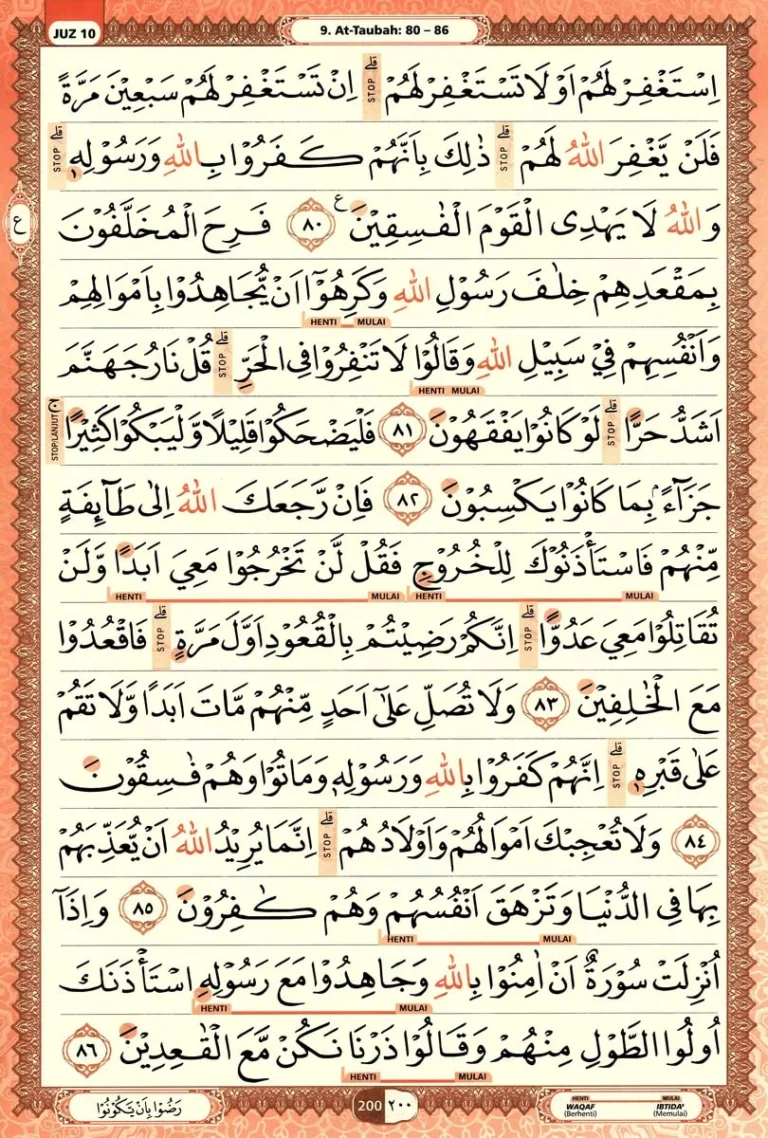 JUZ 10
9. At-Taubah: 80 – 86
اِسْتَغْفِرْ لَهُمْ اَوْ لَا تَسْتَغْفِرْ لَهُمْۗ STOP اِنْ تَسْتَغْفِرْ لَهُمْ سَبْعِيْنَ مَرَّةً
فَلَنْ يَّغْفِرَ اللّٰهُ لَهُمْۗ STOP ذٰلِكَ بِاَنَّهُمْ كَفَرُوْا بِاللّٰهِ وَرَسُوْلِهٖۗ STOP
وَاللّٰهُ لَا يَهْدِى الْقَوْمَ الْفٰسِقِيْنَ ࣖ ٨٠ فَرِحَ الْمُخَلَّفُوْنَ
ع
بِمَقْعَدِهِمْ خِلٰفَ رَسُوْلِ اللّٰهِ وَكَرِهُوْٓا اَنْ يُّجَاهِدُوْا بِاَمْوَالِهِمْ
HENTI MULAI
وَاَنْفُسِهِمْ فِيْ سَبِيْلِ اللّٰهِ وَقَالُوْا لَا تَنْفِرُوْا فِى الْحَرِّۗ STOP قُلْ نَارُ جَهَنَّمَ
HENTI MULAI
اَشَدُّ حَرًّاۗ STOP لَوْ كَانُوْا يَفْقَهُوْنَ ٨١ فَلْيَضْحَكُوْا قَلِيْلًا وَّلْيَبْكُوْا كَثِيْرًاۚ STOP/LANJUT
جَزَاۤءًۢ بِمَا كَانُوْا يَكْسِبُوْنَ ٨٢ فَاِنْ رَّجَعَكَ اللّٰهُ اِلٰى طَاۤىِٕفَةٍ
مِّنْهُمْ فَاسْتَأْذَنُوْكَ لِلْخُرُوْجِ فَقُلْ لَّنْ تَخْرُجُوْا مَعِيَ اَبَدًا وَّلَنْ
HENTI MULAI HENTI MULAI
تُقَاتِلُوْا مَعِيَ عَدُوًّاۗ STOP اِنَّكُمْ رَضِيْتُمْ بِالْقُعُوْدِ اَوَّلَ مَرَّةٍۗ STOP فَاقْعُدُوْا
مَعَ الْخٰلِفِيْنَ ٨٣ وَلَا تُصَلِّ عَلٰٓى اَحَدٍ مِّنْهُمْ مَّاتَ اَبَدًا وَّلَا تَقُمْ
عَلٰى قَبْرِهٖۗ STOP اِنَّهُمْ كَفَرُوْا بِاللّٰهِ وَرَسُوْلِهٖ وَمَاتُوْا وَهُمْ فٰسِقُوْنَ
٨٤ وَلَا تُعْجِبْكَ اَمْوَالُهُمْ وَاَوْلَادُهُمْۗ STOP اِنَّمَا يُرِيْدُ اللّٰهُ اَنْ يُّعَذِّبَهُمْ
بِهَا فِى الدُّنْيَا وَتَزْهَقَ اَنْفُسُهُمْ وَهُمْ كٰفِرُوْنَ ٨٥ وَاِذَآ
HENTI MULAI
اُنْزِلَتْ سُوْرَةٌ اَنْ اٰمِنُوْا بِاللّٰهِ وَجَاهِدُوْا مَعَ رَسُوْلِهِ اسْتَأْذَنَكَ
HENTI MULAI
اُولُوا الطَّوْلِ مِنْهُمْ وَقَالُوْا ذَرْنَا نَكُنْ مَّعَ الْقٰعِدِيْنَ ٨٦
HENTI MULAI
رَضُوْا بِاَنْ يَّكُوْنُوْا
200 ٢٠٠
HENTI MULAI
WAQAF (Berhenti) IBTIDA' (Memulai)